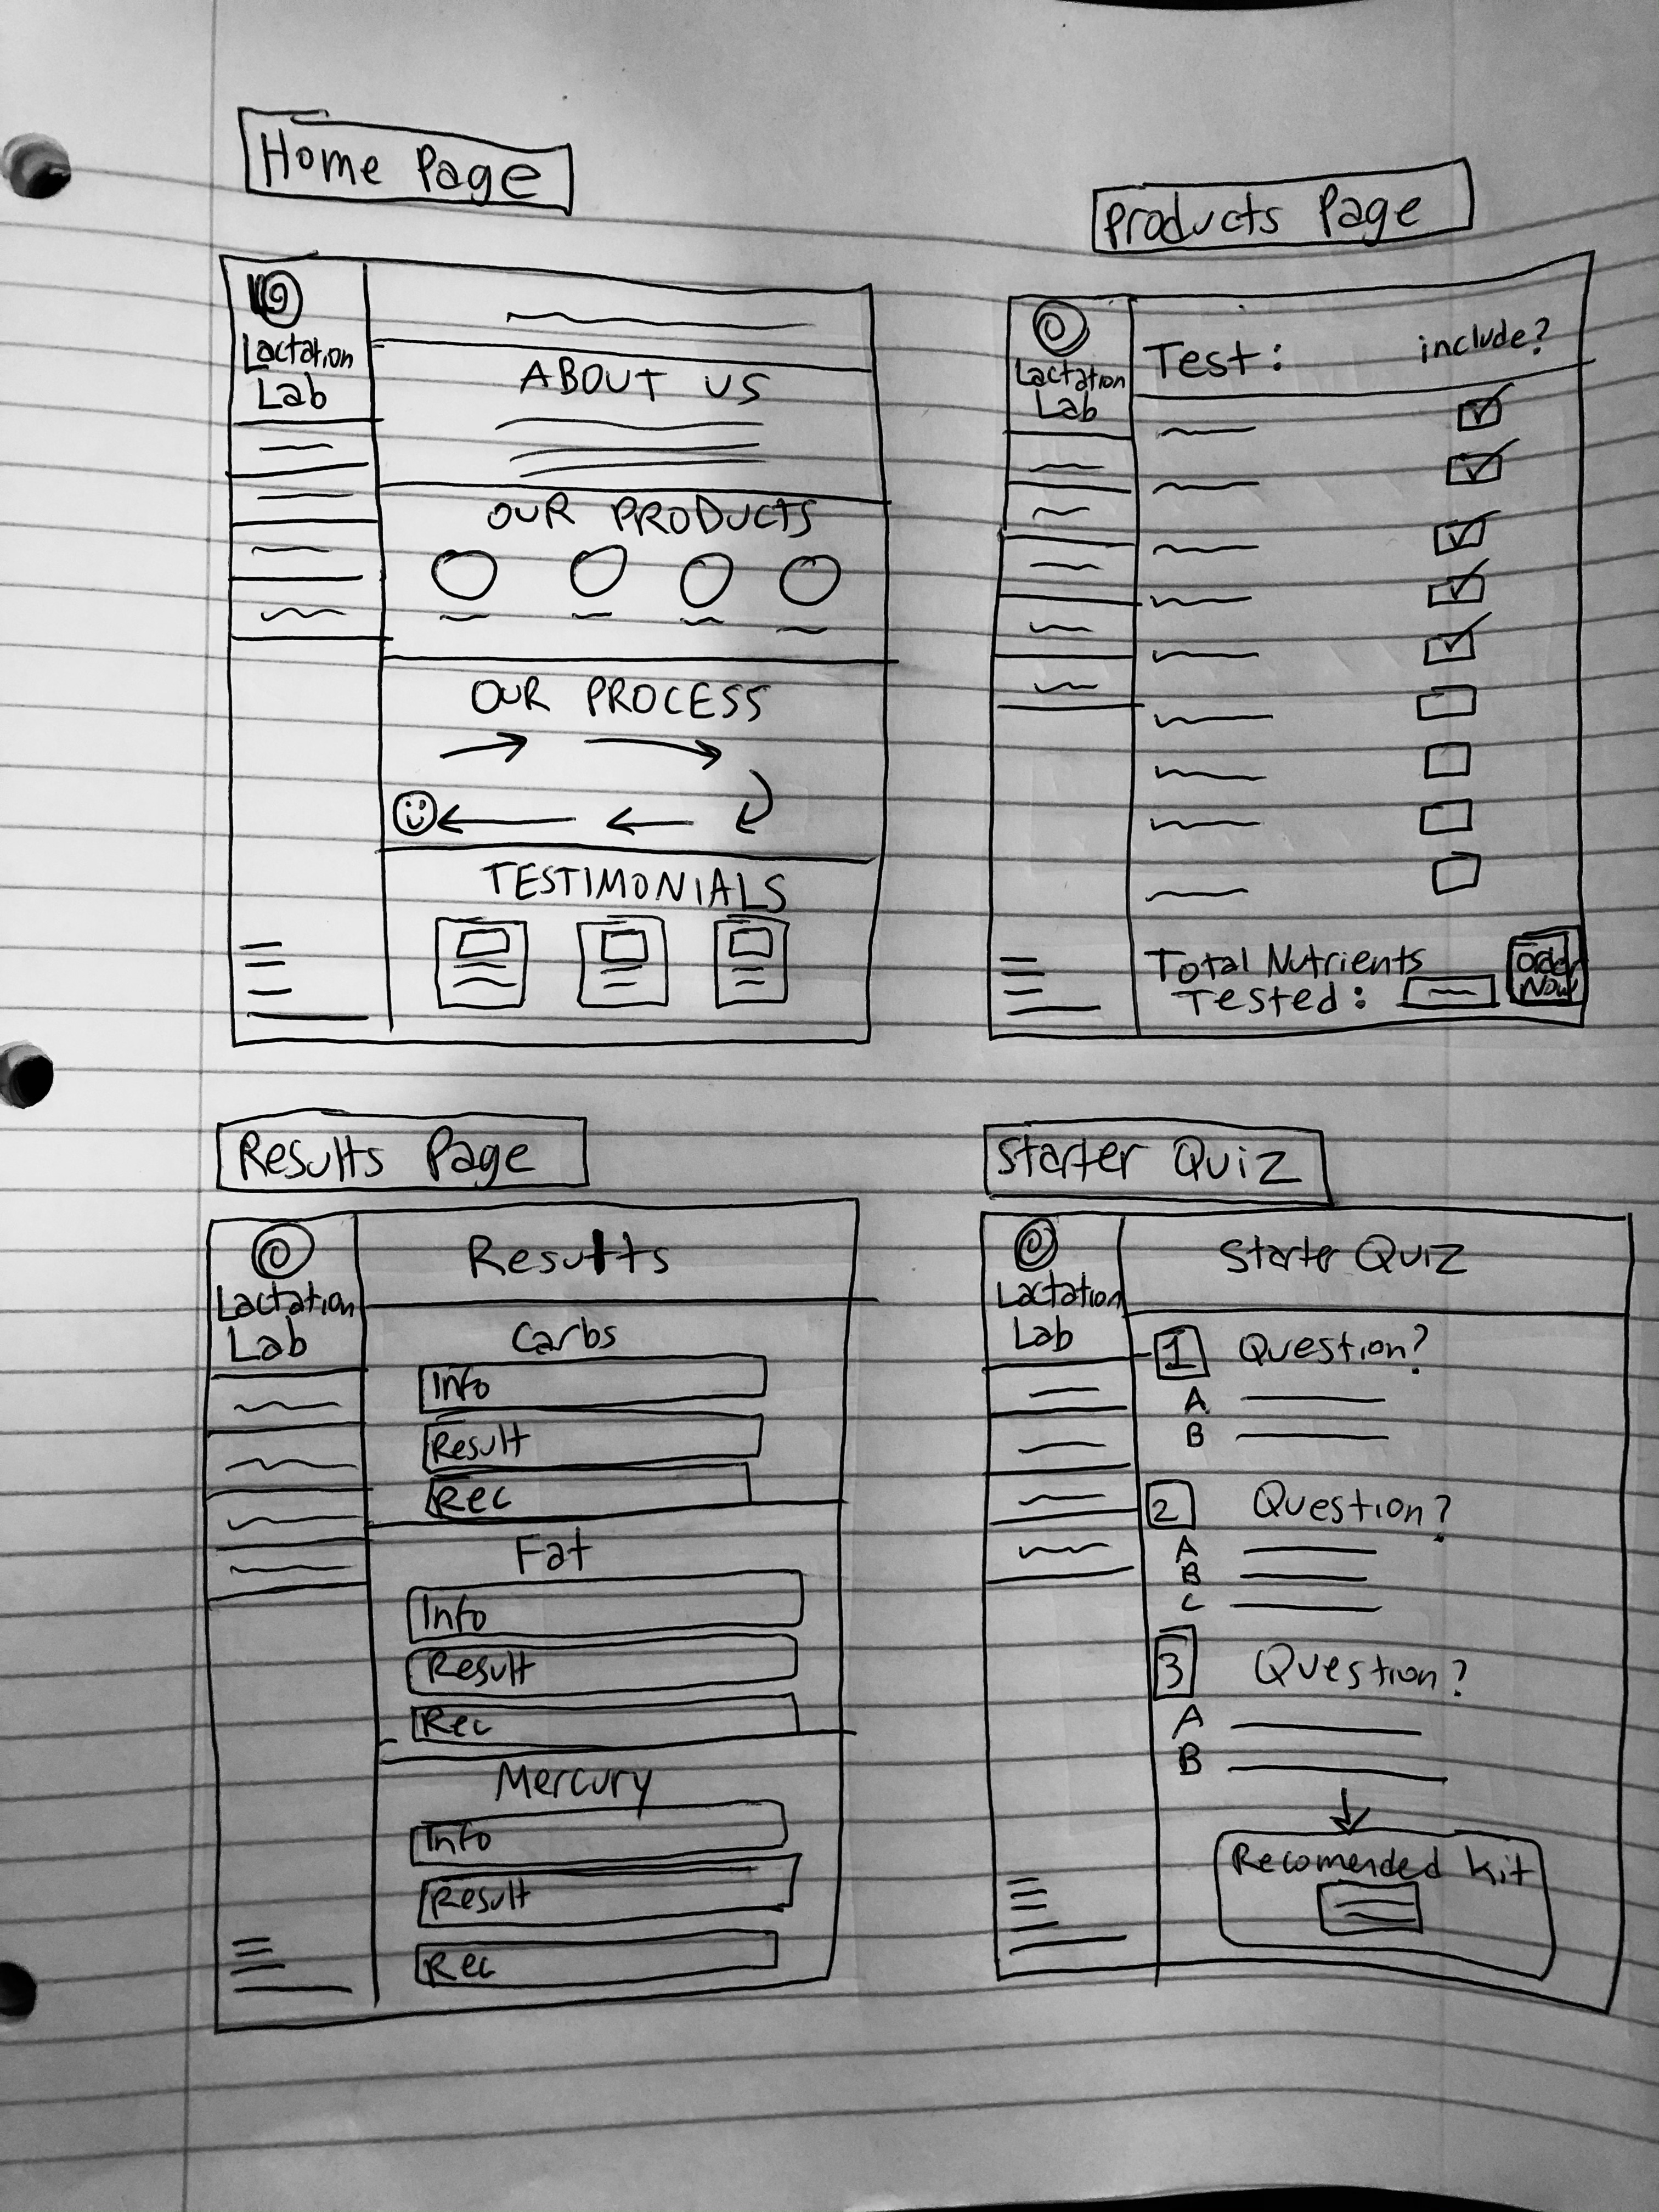 Home Page
Lactation
Lab
ABOUT US
OUR PRODUCTS
OUR PROCESS
TESTIMONIALS
Products Page
Lactation
Lab
Test: include?
Total Nutrients
Tested:
Order
Now
Results Page
Lactation
Lab
Results
Carbs
Info
Result
Rec
Fat
Info
Result
Rec
Mercury
Info
Result
Rec
Starter Quiz
Lactation
Lab
Starter Quiz
1 Question?
A
B
2 Question?
A
B
C
3 Question?
A
B
Recomended Kit